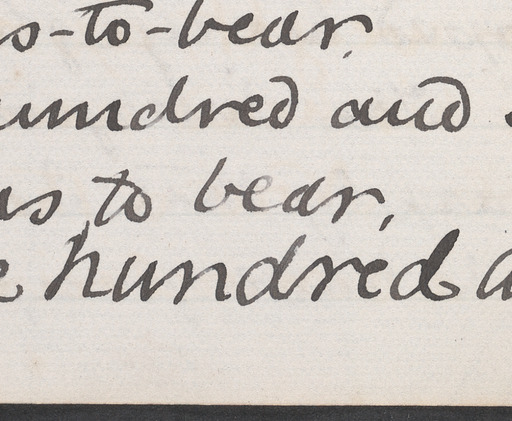 s-to-bear.
undred and
as to bear,
e hundred a